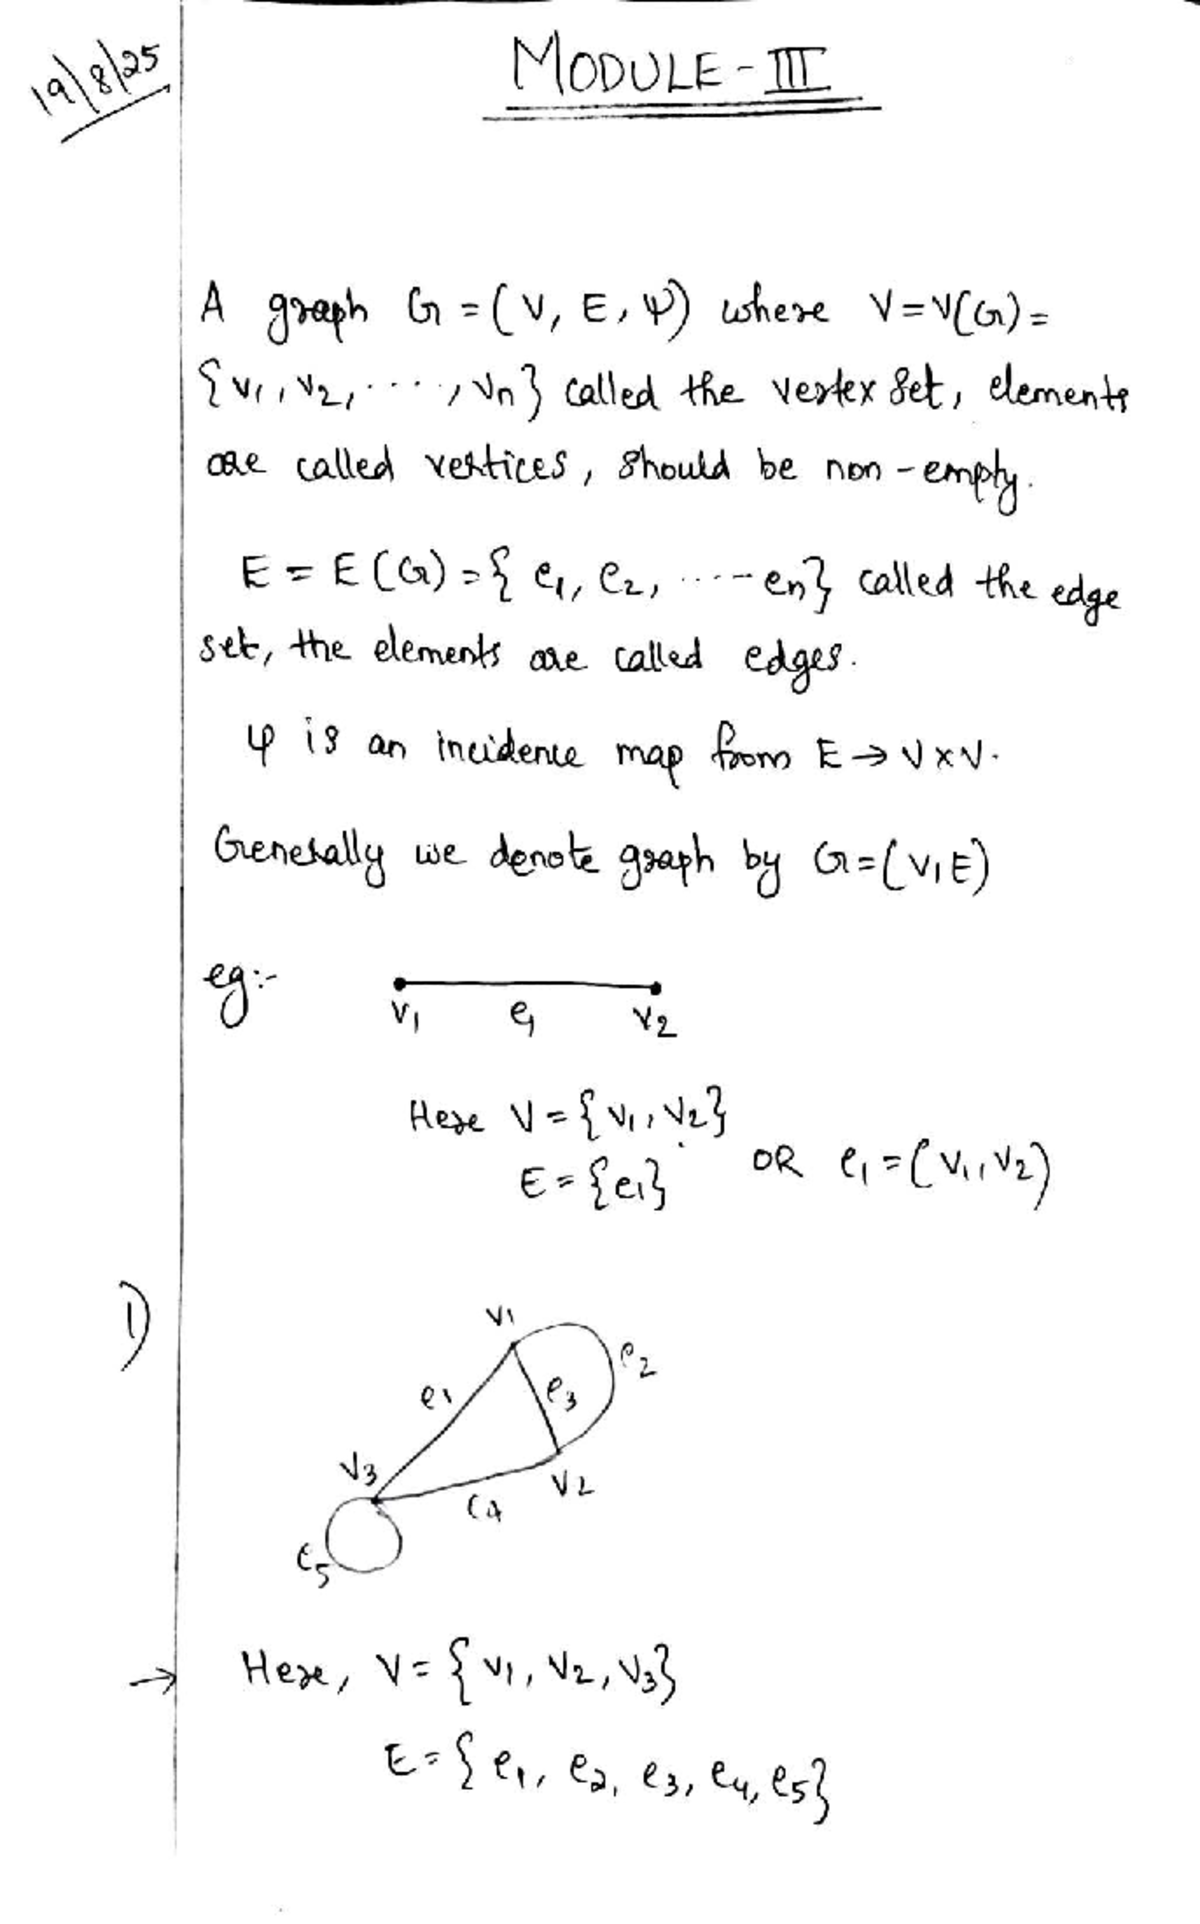 19/8/25
MODULE-III
A graph G = (V, E, Ψ) where V = V(G) =
{v1, v2, ....., vn} called the vertex set, elements
are called vertices, should be non-empty.
E = E(G) = { e1, e2, ..... en} called the edge
set, the elements are called edges.
φ is an incidence map from E → V×V.
Generally we denote graph by G=(V,E)
eg:-
v1 e1 v2
Here V = {v1, v2}
E = {e1} OR e1 = (v1, v2)
1)
v1
e2
e1 e3
v3
v2
e4
e5
→ Here, V = { v1, v2, v3}
E = { e1, e2, e3, e4, e5}